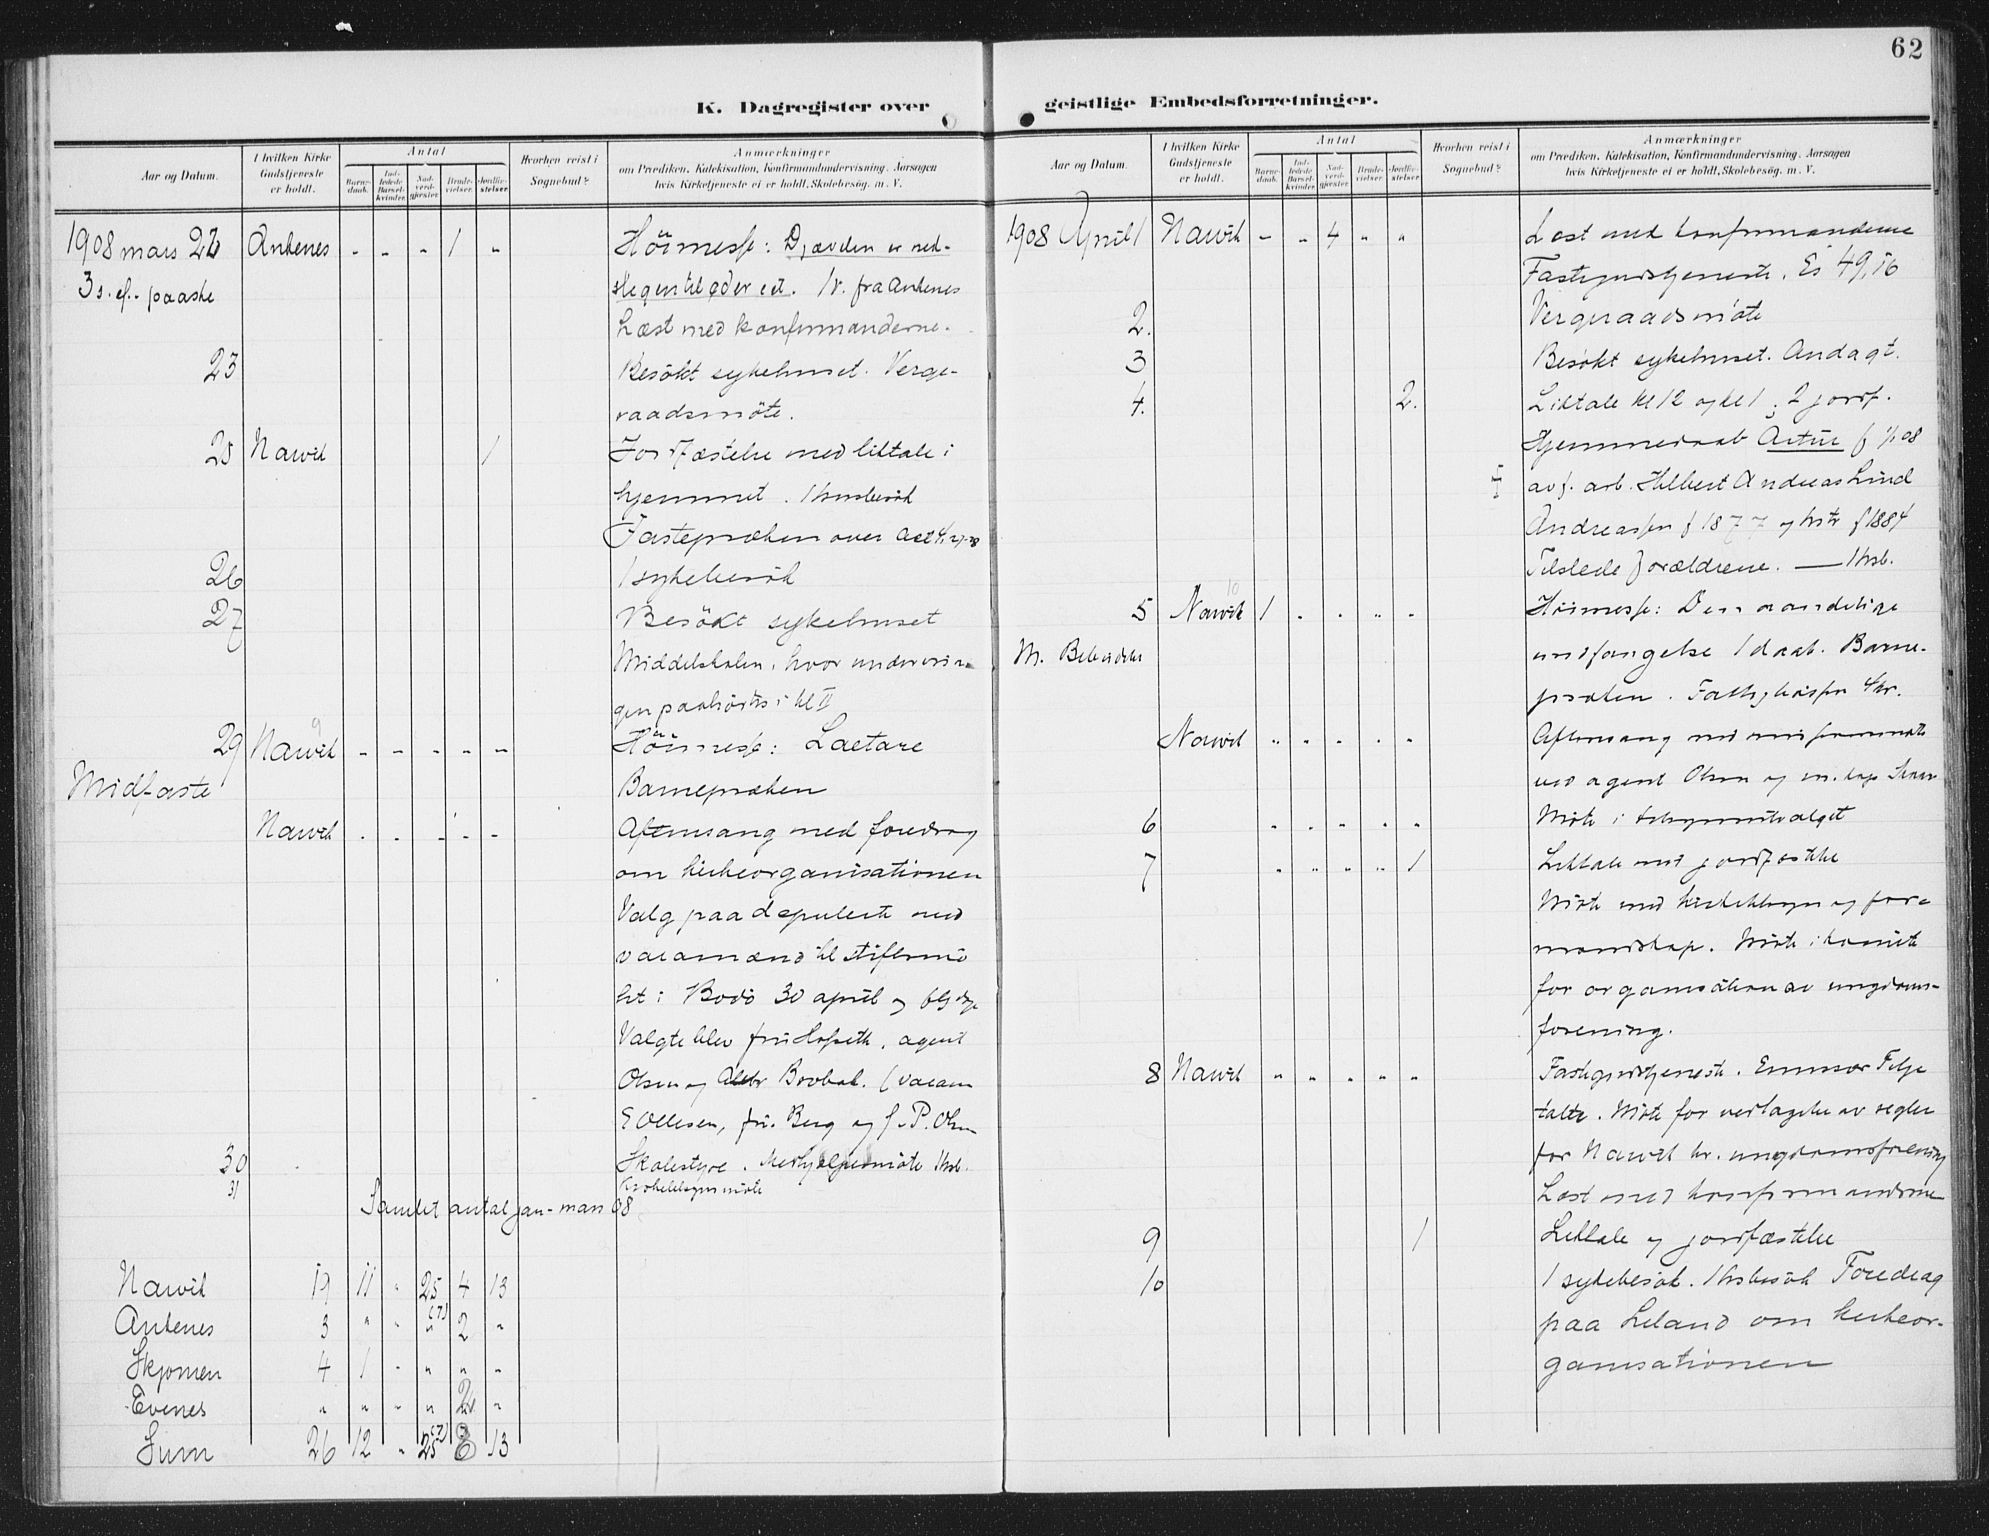 62
K. Dagregister over geistlige Embedsforretninger.
Aar og Datum.
I hvilken Kirke Gudstjeneste er holdt.
Antal
Barnedaab.
Indledede Barselkvinder.
Nadverdgjæster.
Brudevielser.
Jordfæstelser.
Hvorhen reist i Sognebud?
Anmærkninger
om Prædiken, Katekisation, Konfirmandundervisning, Aarsagen
hvis Kirketjeneste ei er holdt, Skolebesøg, m. V.
1908 mars 22 Ankenes - - - 1 - Höimesse: Djævelen er ned-
3 s. ef. paaske
1 v. fra Ankenes
Læst med konfirmanderne.
23 Besökt sykehuset. Verge-
raadsmöte.
25 Narvik 1 Jordfæstelse med liktale i
hjemmet. 1 husbesök
Fastepræken over
26 1 sykebesök
27 Besökt sykehuset
Middelskolen, hvor undervisnin-
gen paahörtes i kl II
29 Narvik 9 - - - - - Höimesse: Laetare
Midfaste Barnepræken
Narvik - - - - - Aftensang med foredrag
om kirkeorganisationen
Valg paa deputerte med
varamænd til stiftsmö-
tet i Bodö 30 april og
Valgte blev fru Hofseth, agent
Olsen og
Ellesen, fru Berg og P. Olsen
30 Skolestyre. Medhjælpermöte 1 husb.
31
Samlet antal jan-mars 08
Narvik 19 11 - 25 4 13
Ankenes 3 " - (7) " 2 "
Skjomen 4 1 - " " -
Evenes " " - " 2 "
Sum 26 12 - 25 (7) 8 13
Aar og Datum.
I hvilken Kirke Gudstjeneste er holdt.
Antal
Barnedaab.
Indledede Barselkvinder.
Nadverdgjæster.
Brudevielser.
Jordfæstelser.
Hvorhen reist i Sognebud?
Anmærkninger
om Prædiken, Katekisation, Konfirmandundervisning, Aarsagen
hvis Kirketjeneste ei er holdt, Skolebesøg, m. V.
1908 April 1 Narvik - - 4 - - Læst med konfirmanderne
Fastegudstjeneste. Es 49,16
2. Vergeraadsmöte
3 Besökt sykehuset. Andagt.
4. 2. Liktale kl 12 og kl 1; 2 jordf.
Hjemmedaab
av f. arb. Hilbert Andreas Lind
Andreassen f 1877 og hstr f 1884
Tilstede forældrene. — 1 husb.
5 Narvik 10 1 - - - - Höimesse: Den aandelige
M. Bebudelse undfangelse 1 daab. Barne-
præken.
Narvik - - - - - Aftensang
ved agent Olsen og
6 - - - - - Möte i
7 - - - - 1 Liktale med jordfæstelse
Möte med kirketilsyn og for-
mandskap. Möte i komite
for organisation av ungdoms-
forening.
8 Narvik - - - - - Fastegudstjeneste.
talte. Möte for vedtagelse av regler
for Narvik kr. ungdomsforening
Læst med konfirmanderne
9 1 Liktale og jordfæstelse
10 1 sykebesök. 1 husbesök Foredrag
paa om kirkeor-
ganisationen